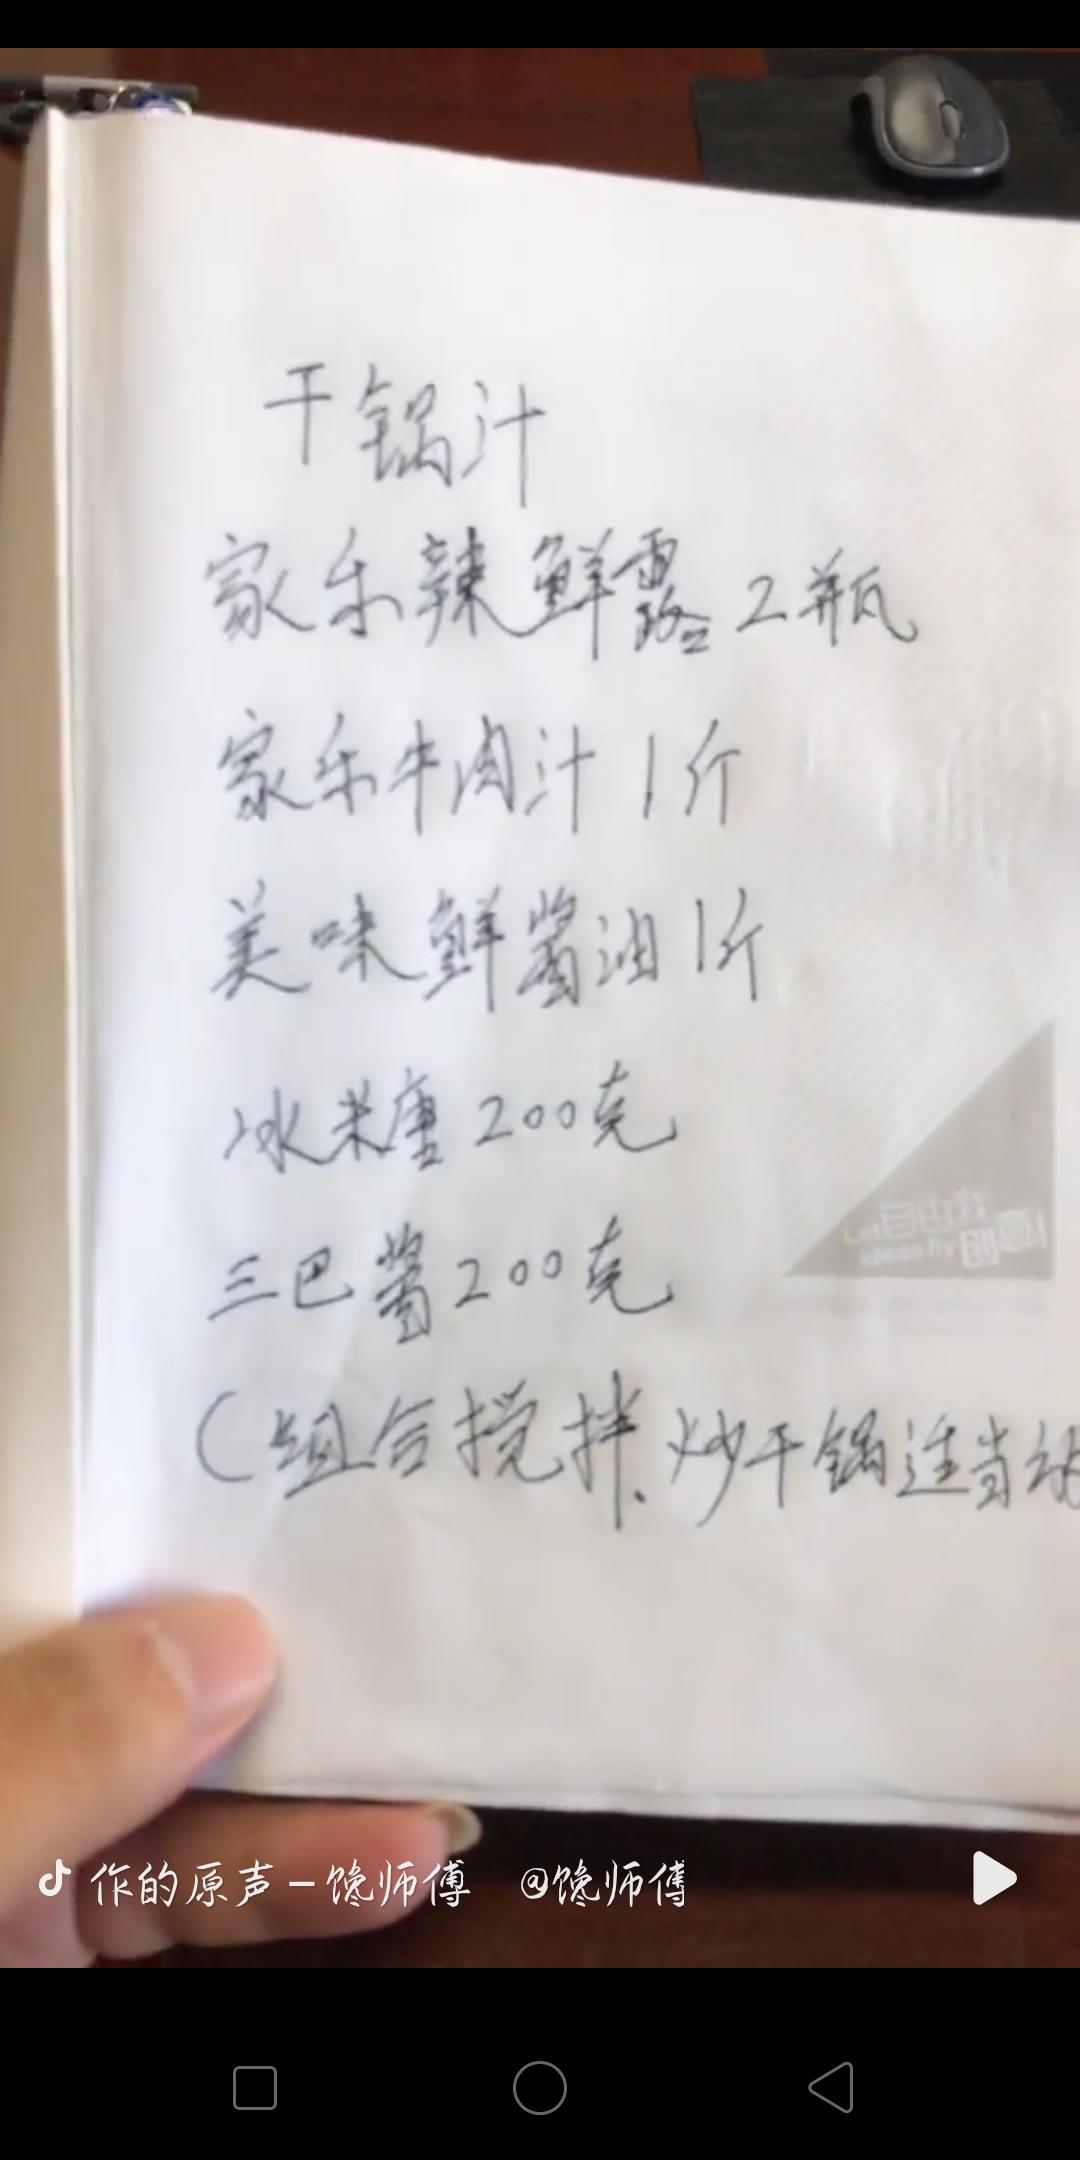 干锅汁
家乐辣鲜露2瓶
家乐牛肉汁1斤
美味鲜酱油1斤
冰糖200克
三巴酱200克
(组合搅拌、炒干锅适当
自由我
创意!
Let
ideas fly
作的原声-馋师傅 @馋师傅